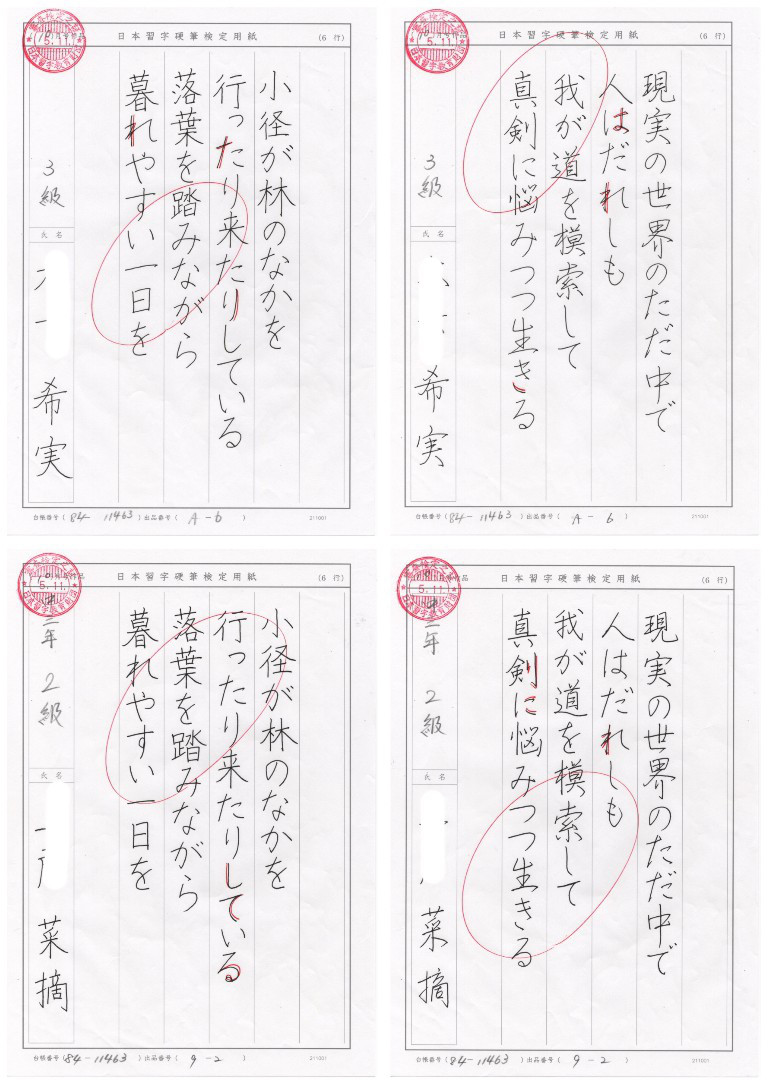 日本習字硬筆検定用紙
(6 行)
小径が林のなかを
行ったり来たりしている
落葉を踏みながら
暮れやすい一日を
3級
氏名
希実
台帳番号(84-11463)出品番号( A-6 )
211001
5.11.
日本習字教育財団
日本習字硬筆検定用紙
(6 行)
現実の世界のただ中で
人はだれしも
我が道を模索して
真剣に悩みつつ生きる
3級
氏名
希実
台帳番号(84-11463)出品番号( A-6 )
211001
5.11.
日本習字教育財団
日本習字硬筆検定用紙
(6 行)
小径が林のなかを
行ったり来たりしている
落葉を踏みながら
暮れやすい一日を
二年 2級
氏名
菜摘
台帳番号(84-11463)出品番号( 9-2 )
211001
5.11.
日本習字教育財団
日本習字硬筆検定用紙
(6 行)
現実の世界のただ中で
人はだれしも
我が道を模索して
真剣に悩みつつ生きる
二年 2級
氏名
菜摘
台帳番号(84-11463)出品番号( 9-2 )
211001
5.11.
日本習字教育財団